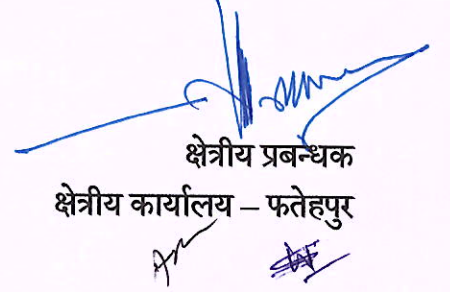 क्षेत्रीय प्रबन्धक
क्षेत्रीय कार्यालय – फतेहपुर